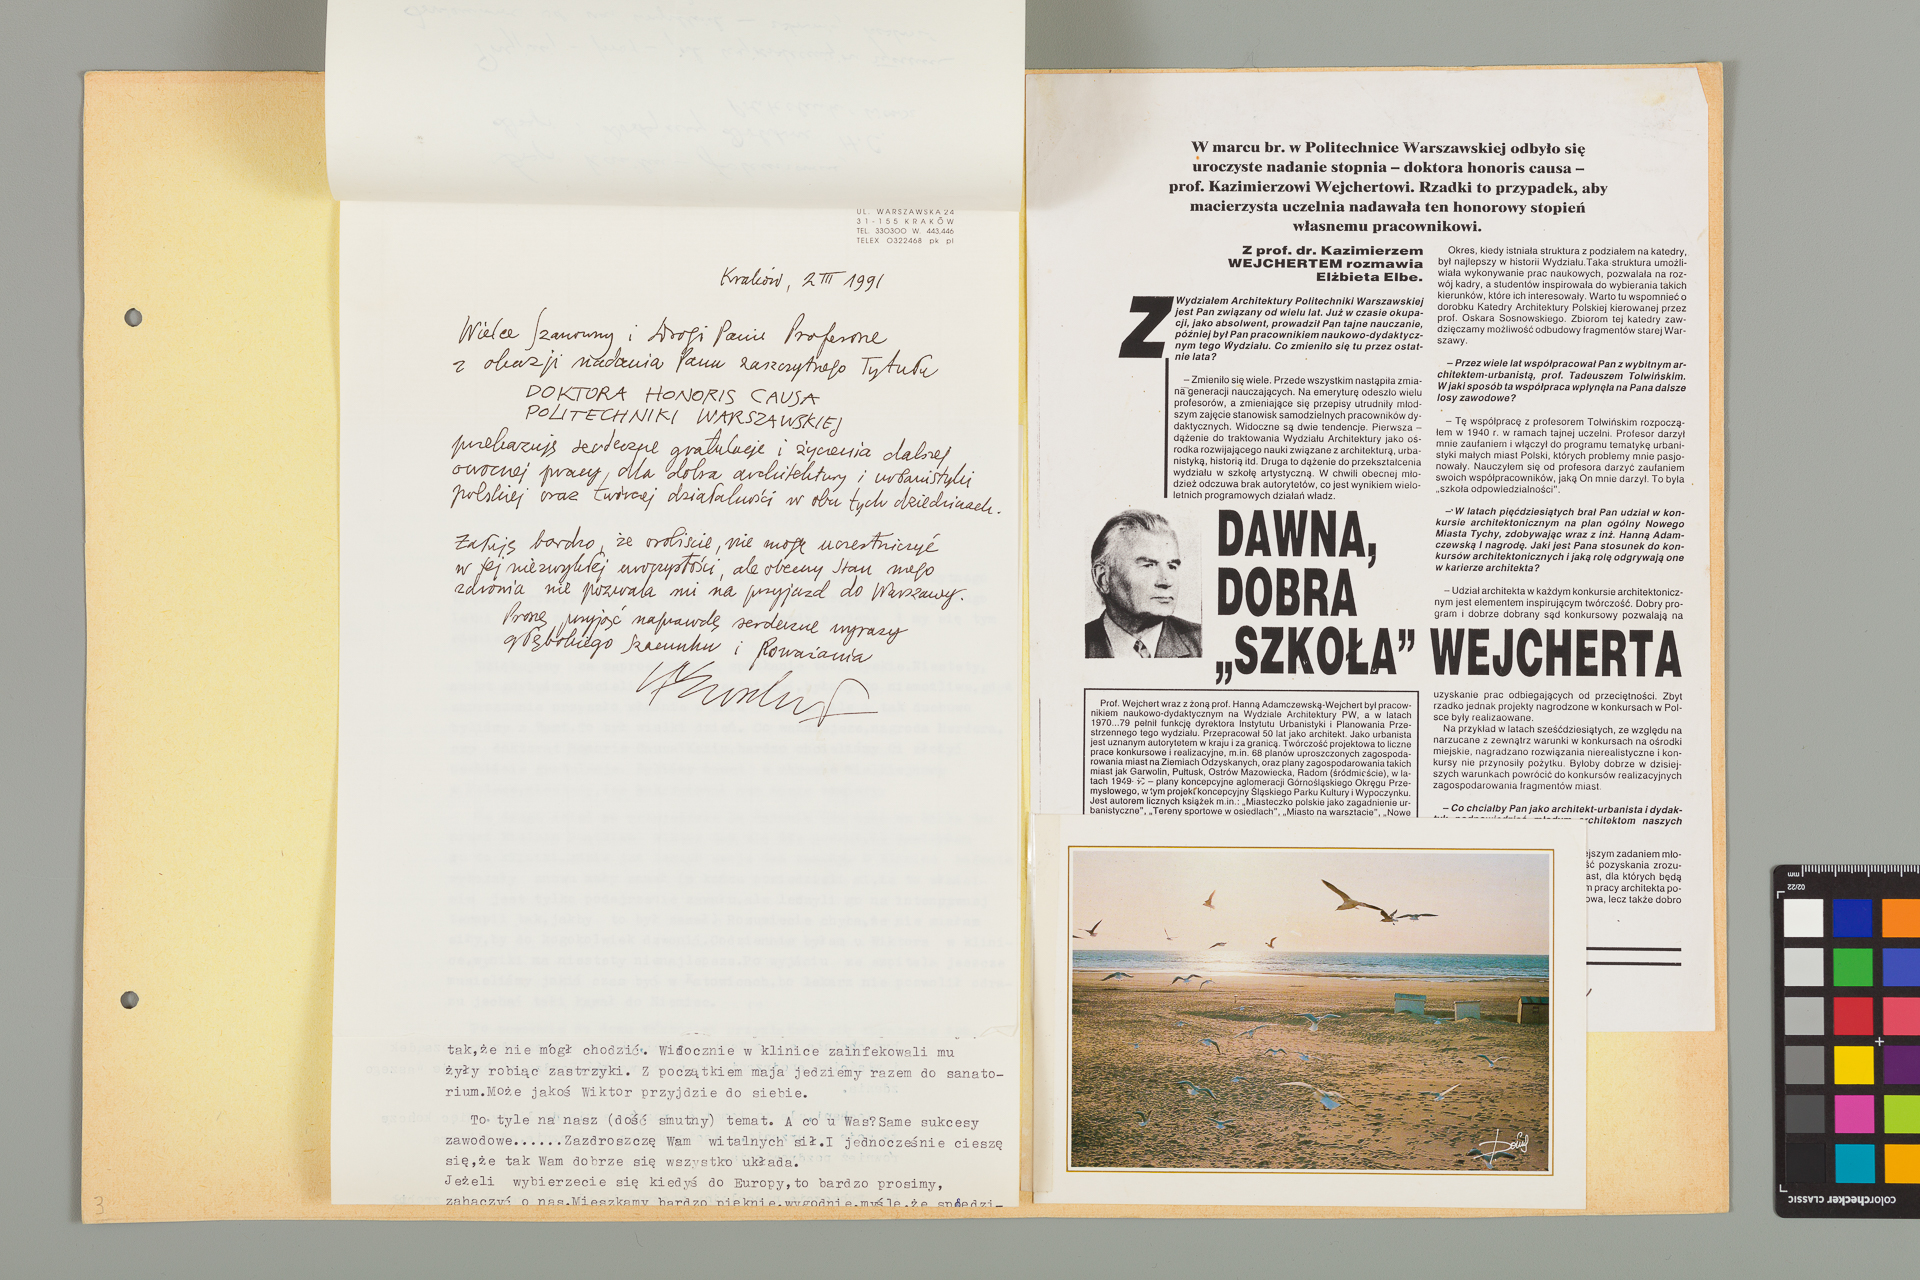 UL. WARSZAWSKA 24
31-155 KRAKÓW
TEL. 330300 W. 443,446
TELEX 0322468 pk pl
Kraków, 2 III 1991
Wielce Szanowny i Drogi Panie Profesorze
z okazji nadania Panu zaszczytnego Tytułu
DOKTORA HONORIS CAUSA
POLITECHNIKI WARSZAWSKIEJ
przekazuję serdeczne gratulacje i życzenia dalszej
owocnej pracy, dla dobra architektury i urbanistyki
polskiej oraz twórczej działalności w obu tych dziedzinach.
Żałuję bardzo, że osobiście, nie mogę uczestniczyć
w tej niezwykłej uroczystości, ale obecny stan mego
zdrowia nie pozwala mi na przyjazd do Warszawy.
Proszę przyjąć naprawdę serdeczne wyrazy
głębokiego szacunku i poważania
tak,że nie mógł chodzić. Widocznie w klinice zainfekowali mu
żyły robiąc zastrzyki. Z początkiem maja jedziemy razem do sanato-
rium.Może jakoś Wiktor przyjdzie do siebie.
To tyle na nasz (dość smutny) temat. A co u Was?Same sukcesy
zawodowe......Zazdroszczę Wam witalnych sił.I jednocześnie cieszę
się,że tak Wam dobrze się wszystko układa.
Jeżeli wybierzecie się kiedyś do Europy,to bardzo prosimy,
zahaczyć o nas.Mieszkamy bardzo pięknie,wygodnie,myślę,że spędzi-
3
W marcu br. w Politechnice Warszawskiej odbyło się
uroczyste nadanie stopnia – doktora honoris causa –
prof. Kazimierzowi Wejchertowi. Rzadki to przypadek, aby
macierzysta uczelnia nadawała ten honorowy stopień
własnemu pracownikowi.
Z prof. dr. Kazimierzem
WEJCHERTEM rozmawia
Elżbieta Elbe.
Z Wydziałem Architektury Politechniki Warszawskiej
jest Pan związany od wielu lat. Już w czasie okupa-
cji, jako absolwent, prowadził Pan tajne nauczanie,
później był Pan pracownikiem naukowo-dydaktycz-
nym tego Wydziału. Co zmieniło się tu przez ostat-
nie lata?
– Zmieniło się wiele. Przede wszystkim nastąpiła zmia-
na generacji nauczających. Na emeryturę odeszło wielu
profesorów, a zmieniające się przepisy utrudniły młod-
szym zajęcie stanowisk samodzielnych pracowników dy-
daktycznych. Widoczne są dwie tendencje. Pierwsza –
dążenie do traktowania Wydziału Architektury jako oś-
rodka rozwijającego nauki związane z architekturą, urba-
nistyką, historią itd. Druga to dążenie do przekształcenia
wydziału w szkołę artystyczną. W chwili obecnej mło-
dzież odczuwa brak autorytetów, co jest wynikiem wielo-
letnich programowych działań władz.
Okres, kiedy istniała struktura z podziałem na katedry,
był najlepszy w historii Wydziału. Taka struktura umożli-
wiała wykonywanie prac naukowych, pozwalała na roz-
wój kadry, a studentów inspirowała do wybierania takich
kierunków, które ich interesowały. Warto tu wspomnieć o
dorobku Katedry Architektury Polskiej kierowanej przez
prof. Oskara Sosnowskiego. Zbiorom tej katedry zaw-
dzięczamy możliwość odbudowy fragmentów starej War-
szawy.
– Przez wiele lat współpracował Pan z wybitnym ar-
chitektem-urbanistą, prof. Tadeuszem Tołwińskim.
W jaki sposób ta współpraca wpłynęła na Pana dalsze
losy zawodowe?
– Tę współpracę z profesorem Tołwińskim rozpoczą-
łem w 1940 r. w ramach tajnej uczelni. Profesor darzył
mnie zaufaniem i włączył do programu tematykę urbani-
styki małych miast Polski, których problemy mnie pasjo-
nowały. Nauczyłem się od profesora darzyć zaufaniem
swoich współpracowników, jaką On mnie darzył. To była
„szkoła odpowiedzialności”.
– W latach pięćdziesiątych brał Pan udział w kon-
kursie architektonicznym na plan ogólny Nowego
Miasta Tychy, zdobywając wraz z inż. Hanną Adam-
czewską I nagrodę. Jaki jest Pana stosunek do kon-
kursów architektonicznych i jaką rolę odgrywają one
w karierze architekta?
– Udział architekta w każdym konkursie architektonicz-
nym jest elementem inspirującym twórczość. Dobry pro-
gram i dobrze dobrany sąd konkursowy pozwalają na
DAWNA,
DOBRA
„SZKOŁA” WEJCHERTA
Prof. Wejchert wraz z żoną prof. Hanną Adamczewską-Wejchert był pracow-
nikiem naukowo-dydaktycznym na Wydziale Architektury PW, a w latach
1970...79 pełnił funkcję dyrektora Instytutu Urbanistyki i Planowania Prze-
strzennego tego wydziału. Przepracował 50 lat jako architekt. Jako urbanista
jest uznanym autorytetem w kraju i za granicą. Twórczość projektowa to liczne
prace konkursowe i realizacyjne, m.in. 68 planów uproszczonych zagospoda-
rowania miast na Ziemiach Odzyskanych, oraz plany zagospodarowania takich
miast jak Garwolin, Pułtusk, Ostrów Mazowiecka, Radom (śródmieście), w la-
tach 1949 – plany koncepcyjne aglomeracji Górnośląskiego Okręgu Prze-
mysłowego, w tym projekt koncepcyjny Śląskiego Parku Kultury i Wypoczynku.
Jest autorem licznych książek m.in.: „Miasteczko polskie jako zagadnienie ur-
banistyczne”, „Tereny sportowe w osiedlach”, „Miasto na warsztacie”, „Nowe
uzyskanie prac odbiegających od przeciętności. Zbyt
rzadko jednak projekty nagrodzone w konkursach w Pol-
sce były realizaowane.
Na przykład w latach sześćdziesiątych, ze względu na
narzucane z zewnątrz warunki w konkursach na ośrodki
miejskie, nagradzano rozwiązania nierealistyczne i kon-
kursy nie przynosiły pożytku. Byłoby dobrze w dzisiej-
szych warunkach powrócić do konkursów realizacyjnych
zagospodarowania fragmentów miast.
– Co chciałby Pan jako architekt-urbanista i dydak-
architektom naszych
ejszym zadaniem mło-
ść pozyskania zrozu-
ast, dla których będą
m pracy architekta po-
owa, lecz także dobro
mm
02/22
colorchecker CLASSIC